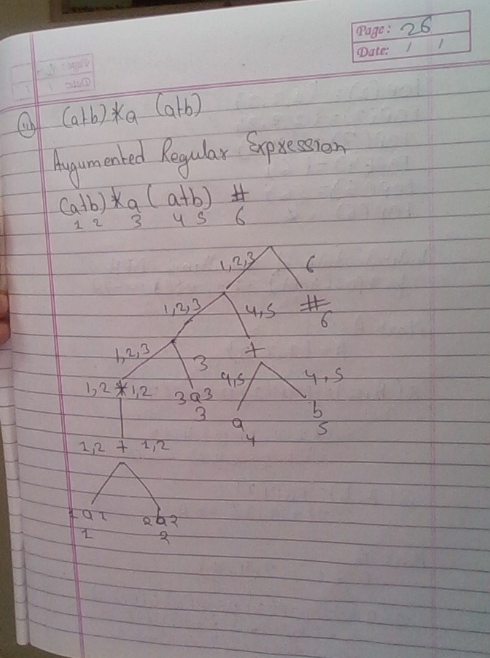 Page: 26
Date: / /
(a+b)*a (a+b)
Augumented Regular Expression
(a+b)*a (a+b) #
1 2 3 4 5 6
1,2,3 6
1,2,3 4,5 #
6
1,2,3 3 +
1,2 * 1,2 3 a 3 4,5 4,5
3 a b
4 5
1,2 + 1,2
1 a 1
1 2